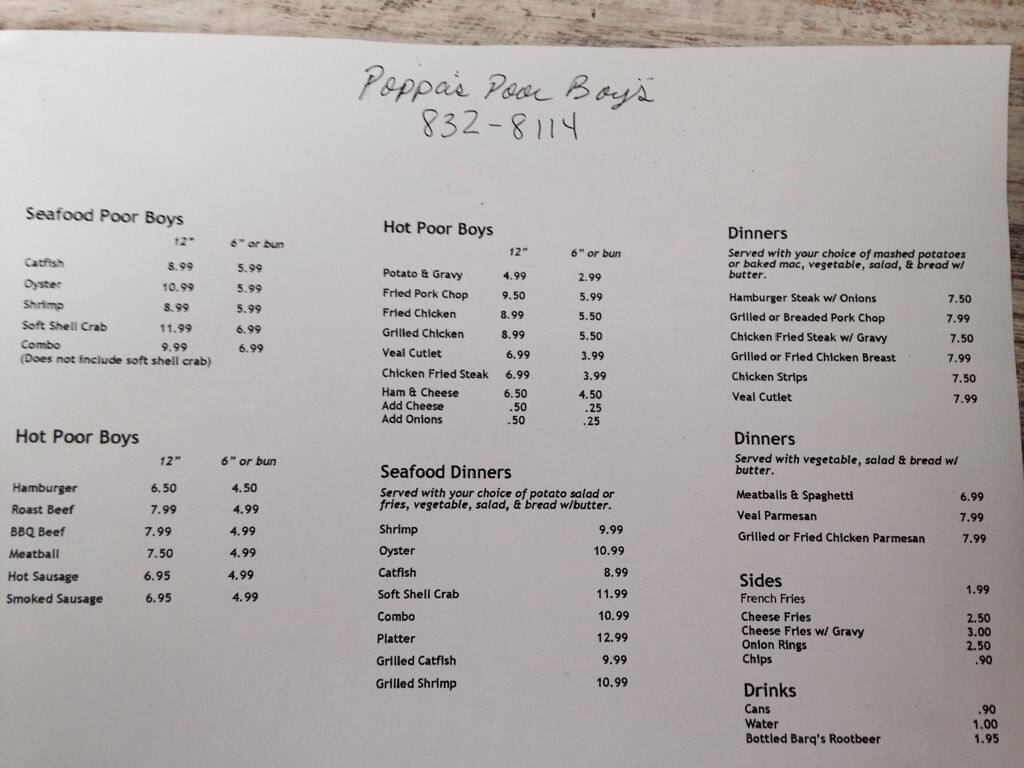 Poppa's Poor Boy's
832-8114
Seafood Poor Boys
12" 6" or bun
Catfish 8.99 5.99
Oyster 10.99 5.99
Shrimp 8.99 5.99
Soft Shell Crab 11.99 6.99
Combo 9.99 6.99
(Does not include soft shell crab)
Hot Poor Boys
12" 6" or bun
Hamburger 6.50 4.50
Roast Beef 7.99 4.99
BBQ Beef 7.99 4.99
Meatball 7.50 4.99
Hot Sausage 6.95 4.99
Smoked Sausage 6.95 4.99
Hot Poor Boys
12" 6" or bun
Potato & Gravy 4.99 2.99
Fried Pork Chop 9.50 5.99
Fried Chicken 8.99 5.50
Grilled Chicken 8.99 5.50
Veal Cutlet 6.99 3.99
Chicken Fried Steak 6.99 3.99
Ham & Cheese 6.50 4.50
Add Cheese .50 .25
Add Onions .50 .25
Seafood Dinners
Served with your choice of potato salad or
fries, vegetable, salad, & bread w/butter.
Shrimp 9.99
Oyster 10.99
Catfish 8.99
Soft Shell Crab 11.99
Combo 10.99
Platter 12.99
Grilled Catfish 9.99
Grilled Shrimp 10.99
Dinners
Served with your choice of mashed potatoes
or baked mac, vegetable, salad, & bread w/
butter.
Hamburger Steak w/ Onions 7.50
Grilled or Breaded Pork Chop 7.99
Chicken Fried Steak w/ Gravy 7.50
Grilled or Fried Chicken Breast 7.99
Chicken Strips 7.50
Veal Cutlet 7.99
Dinners
Served with vegetable, salad & bread w/
butter.
Meatballs & Spaghetti 6.99
Veal Parmesan 7.99
Grilled or Fried Chicken Parmesan 7.99
Sides
French Fries 1.99
Cheese Fries 2.50
Cheese Fries w/ Gravy 3.00
Onion Rings 2.50
Chips .90
Drinks
Cans .90
Water 1.00
Bottled Barq's Rootbeer 1.95